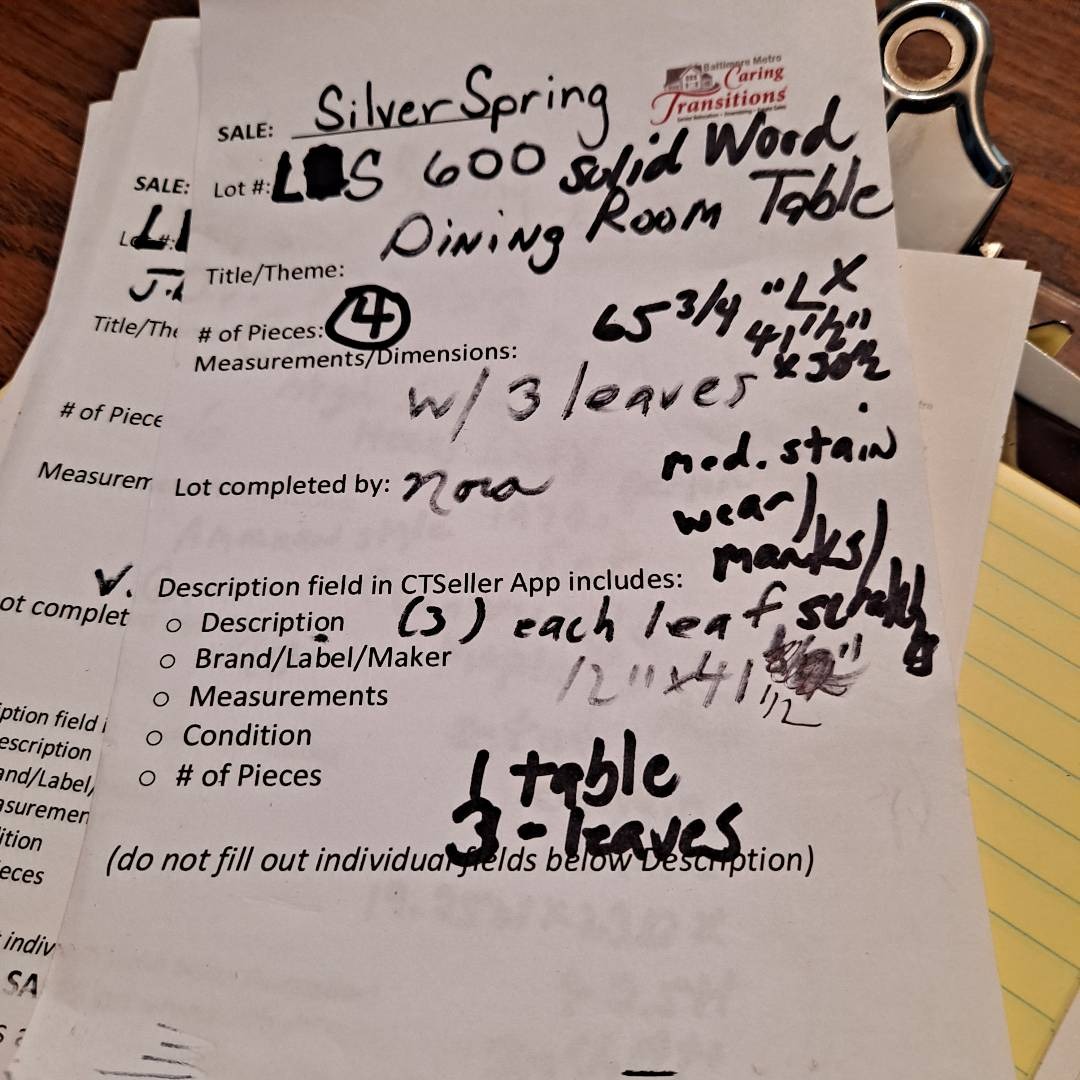 Baltimore Metro
Caring
Transitions
SALE: Silver Spring
Lot #: L S 600 Solid Wood
Dining Room Table
Title/Theme:
# of Pieces: 4
65 3/4 "L X
41 1/2"
x 30 1/2
Measurements/Dimensions:
w/ 3 leaves
med. stain
Lot completed by: Nora
wear/
marks/
V. Description field in CTSeller App includes:
scratch
○ Description (3) each leaf
○ Brand/Label/Maker
12" x 41 1/2"
○ Measurements
○ Condition
○ # of Pieces
1 table
3 - leaves
(do not fill out individual fields below Description)
SALE:
Title/The
# of Piece
Measurem
ot complet
iption field i
escription
and/Label/
asuremen
ition
eces
indiv
SA